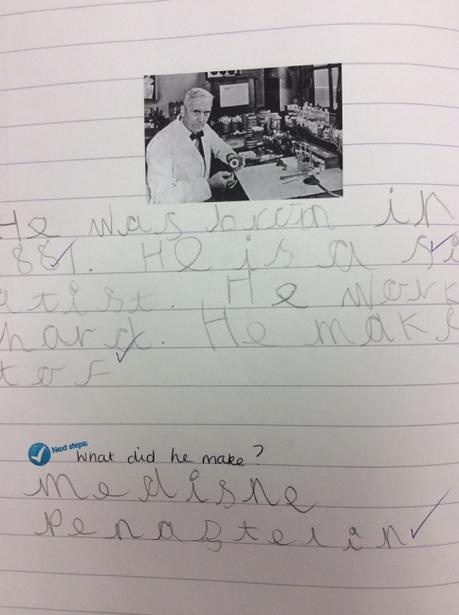 He was brom in
1881. He is a si
atist. He work
hard. He maks
tof
Next steps:
What did he make?
medisne
Penastelin